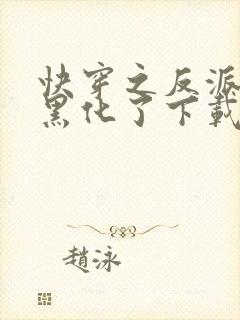 快穿之反派
黑化了下載
趙泳